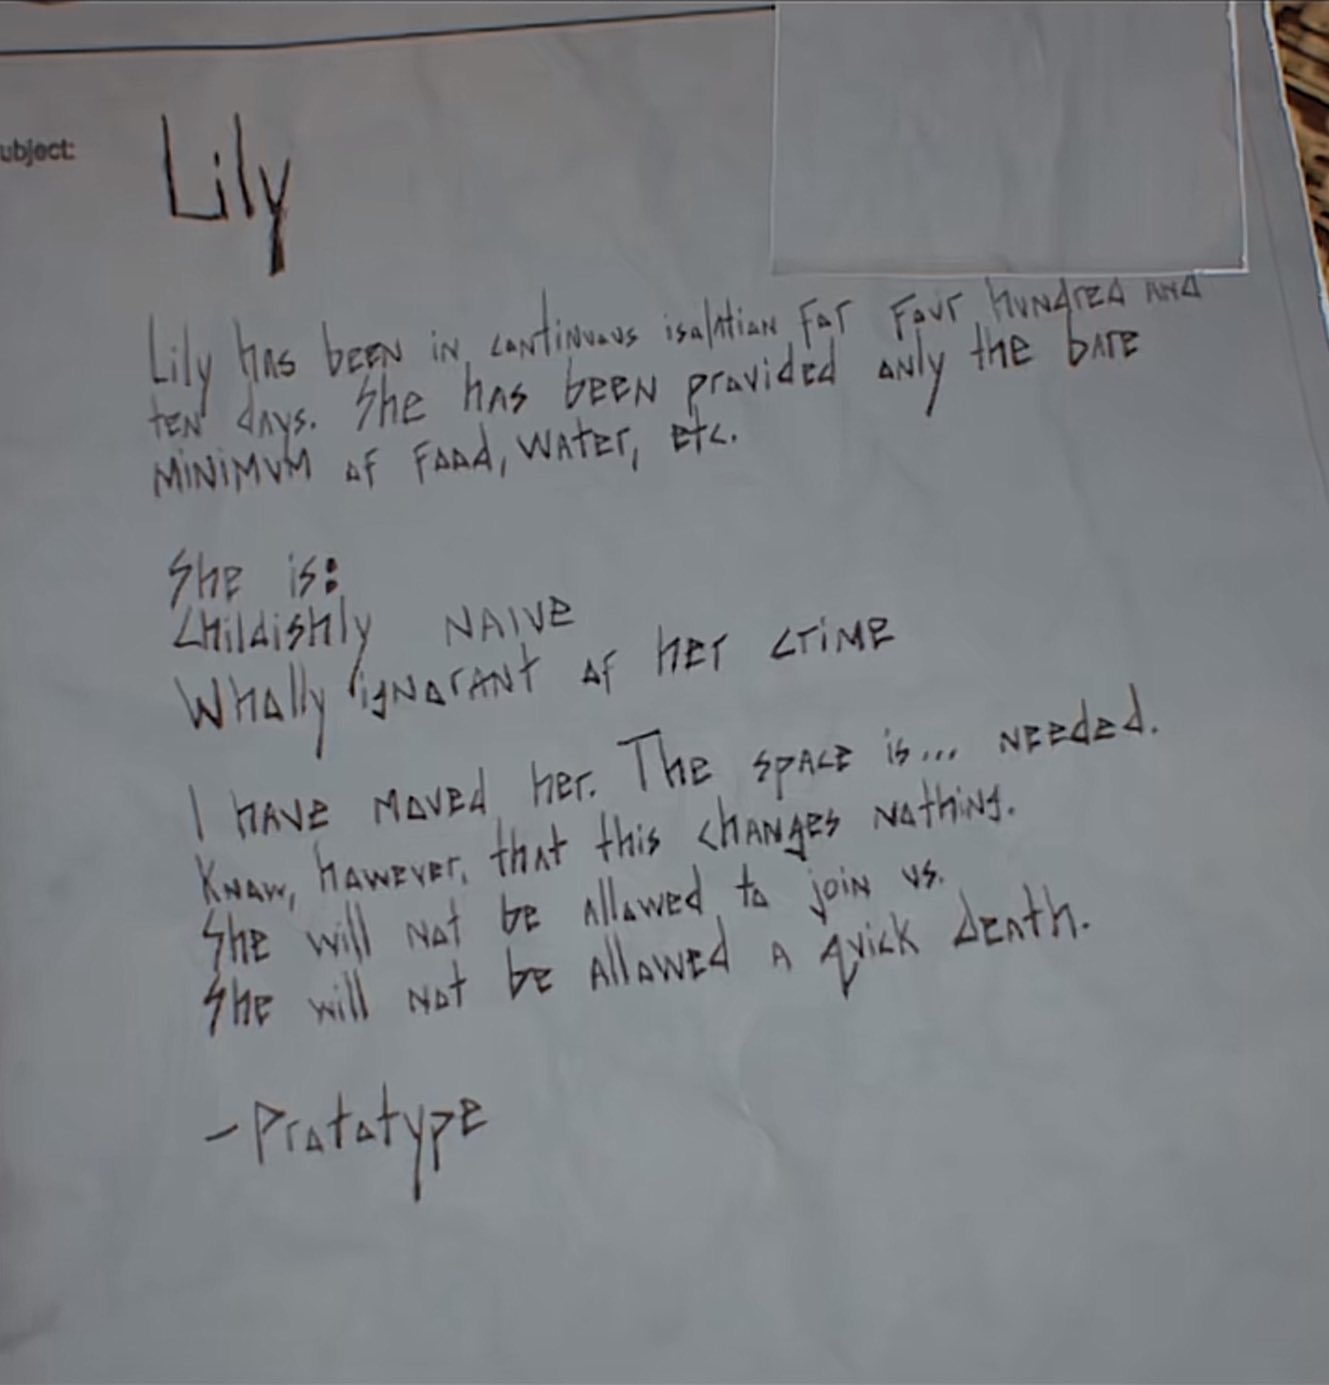 ubject:
Lily
Lily has been in continuous isolation for four hundred and
ten days. She has been provided only the bare
minimum of food, water, etc.
She is:
Childishly naive
Wholly ignorant of her crime
I have moved her. The space is... needed.
Know, however, that this changes nothing.
She will not be allowed to join us.
She will not be allowed a quick death.
-Prototype